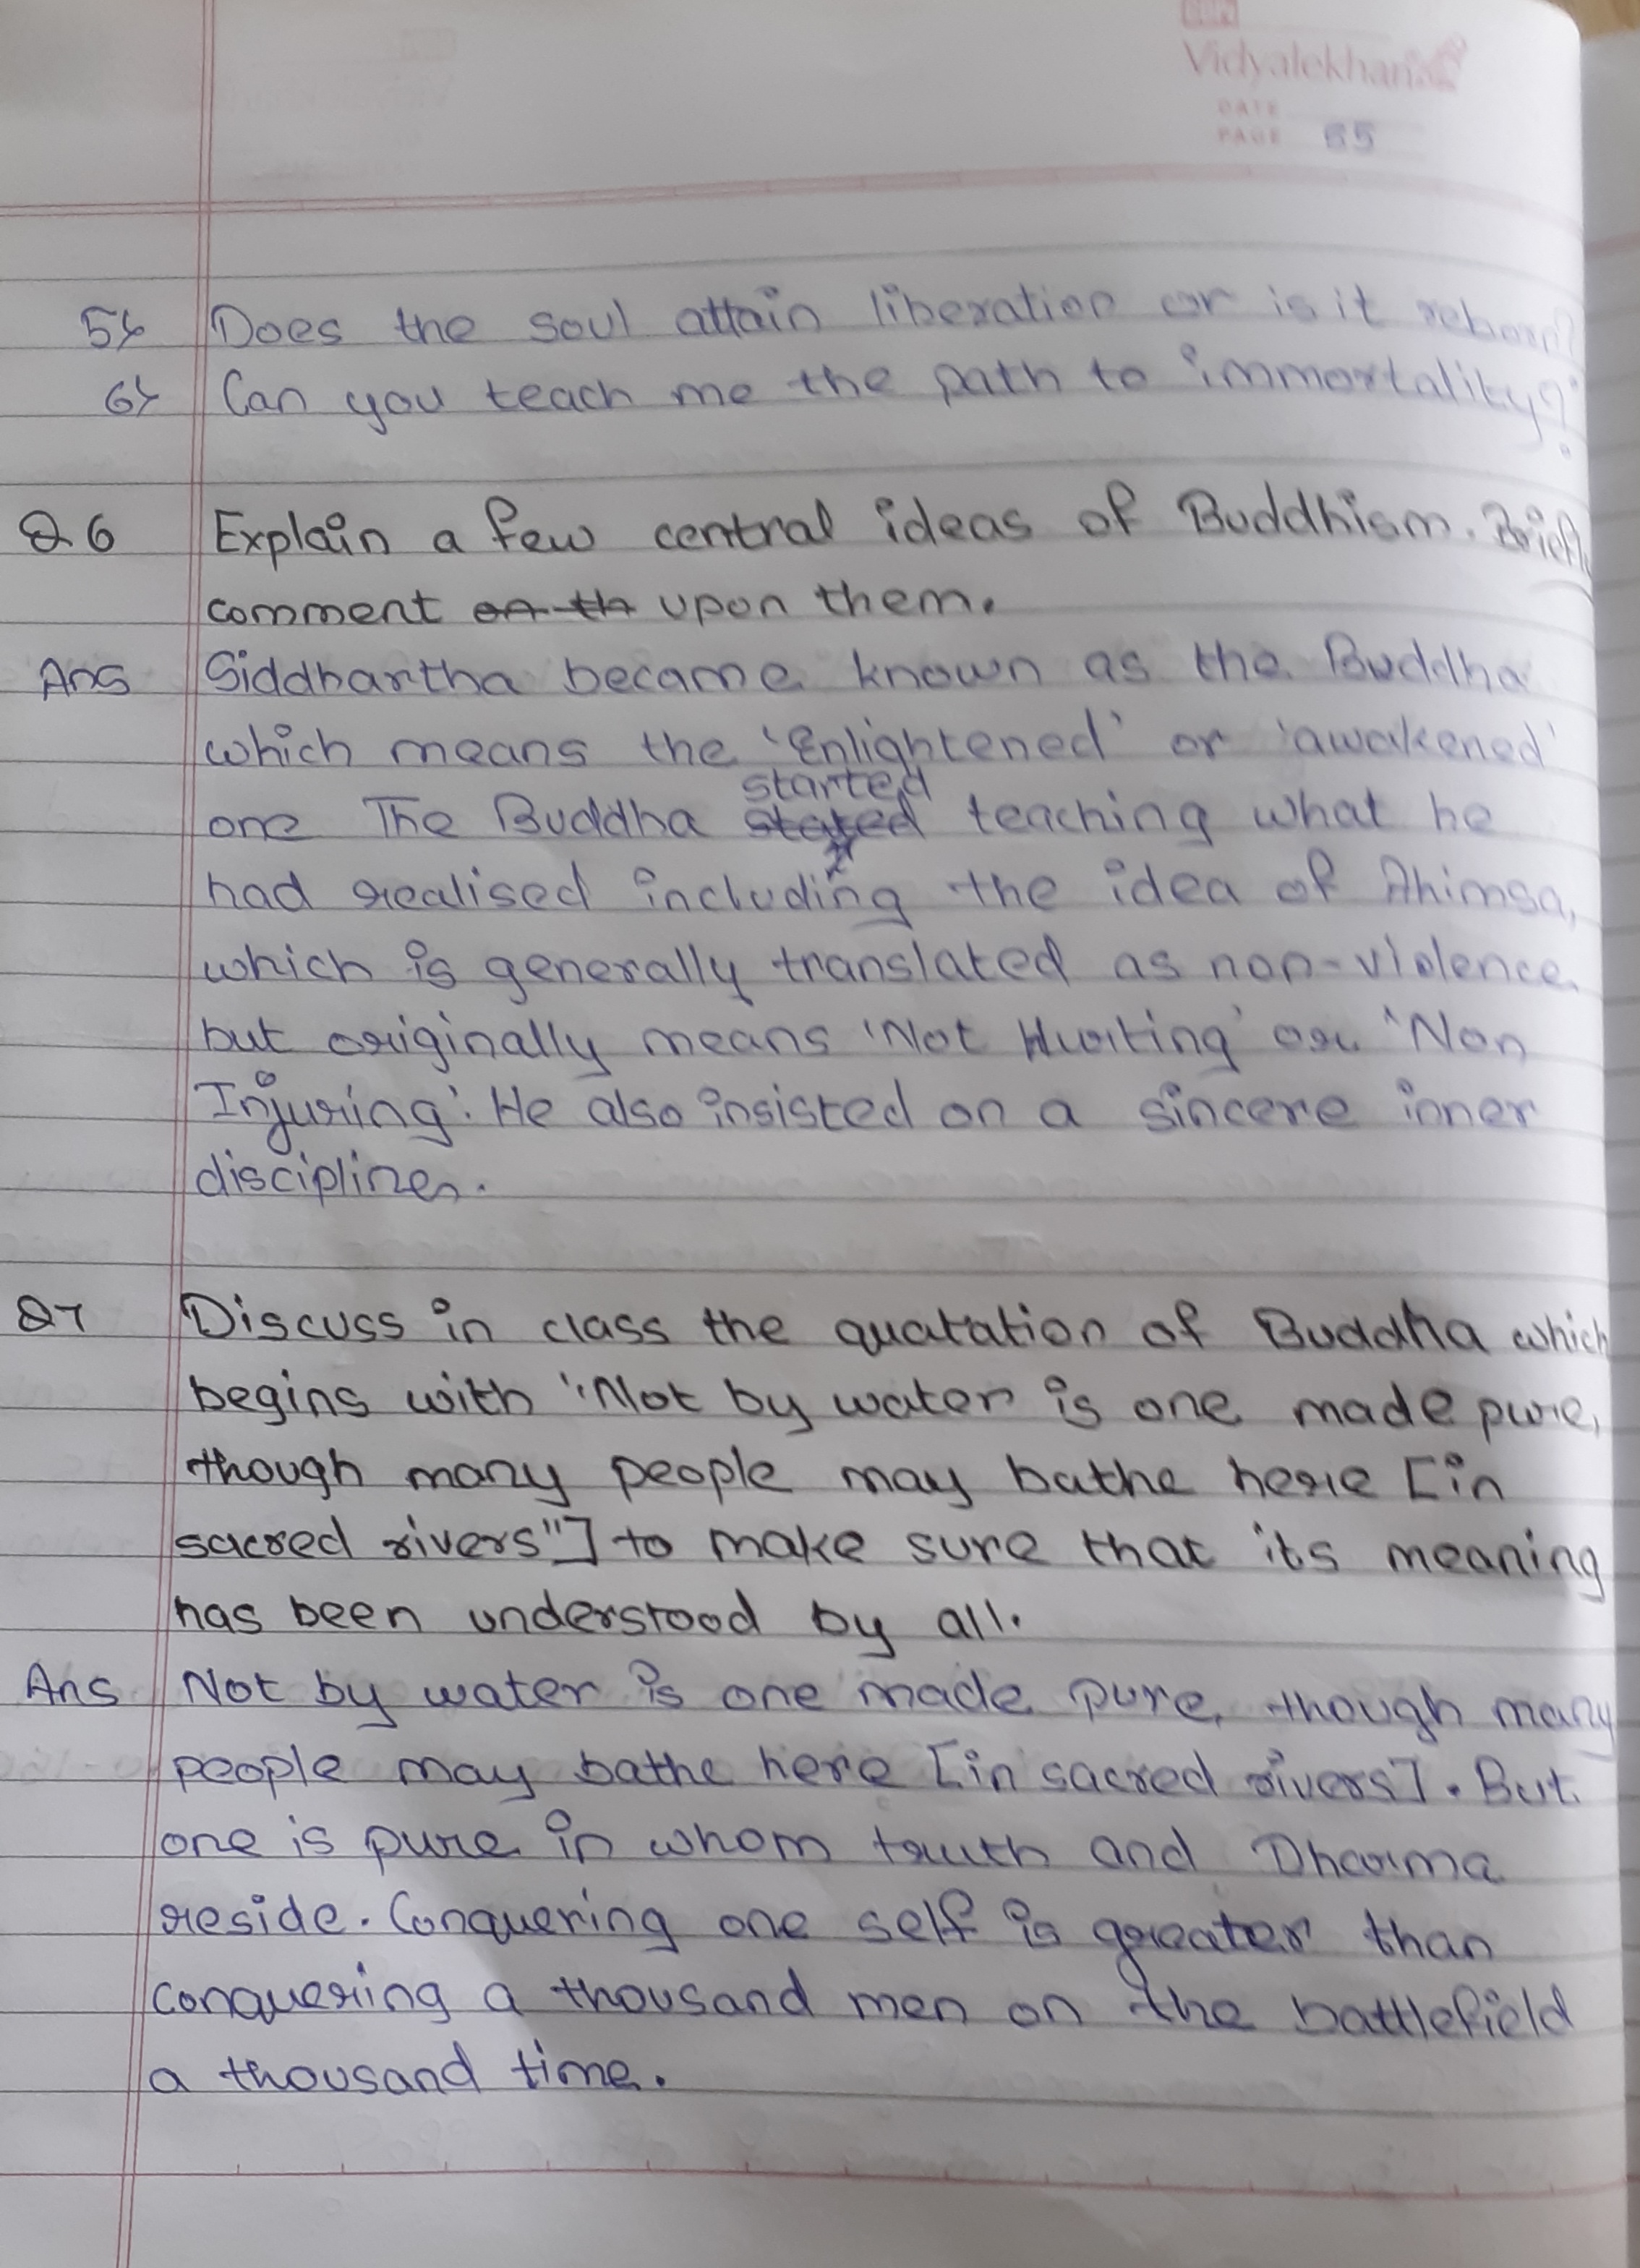 Vidyalekhan
DATE
PAGE 65
5> Does the soul attain liberation or is it reborn?
6> Can you teach me the path to immortality?
Q6 Explain a few central ideas of Buddhism. Briefly
comment on th upon them.
Ans Siddhartha became known as the Buddha
which means the 'Enlightened' or 'awakened'
started
one The Buddha teaching what he
had realised including the idea of Ahimsa,
which is generally translated as non-violence
but originally means 'Not Hurting' or 'Non
Injuring'. He also insisted on a sincere inner
discipline.
Q7 Discuss in class the quatation of Buddha which
begins with "Not by water is one made pure,
though many people may bathe here [in
sacred rivers"] to make sure that its meaning
has been understood by all.
Ans Not by water is one made pure, though many
people may bathe here [in sacred rivers]. But
one is pure in whom truth and Dharma
reside. Conquering one self is greater than
conquering a thousand men on the battlefield
a thousand time.